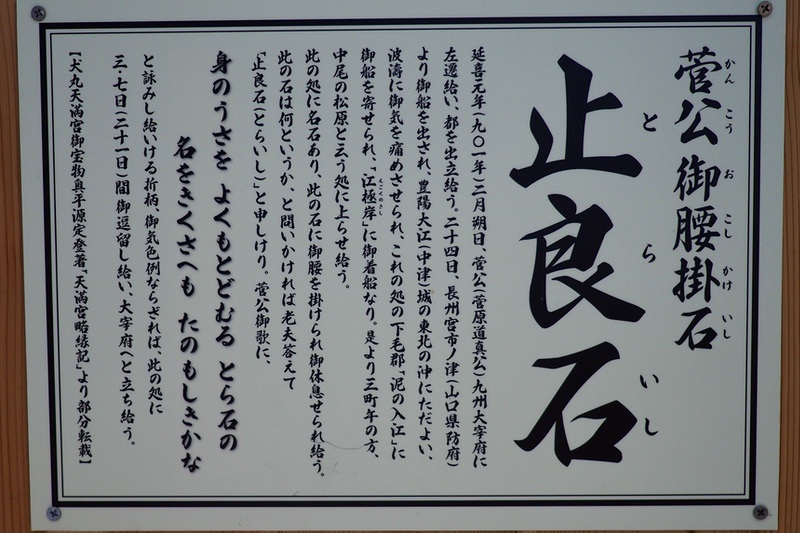 菅公御腰掛石
かんこうおこしかけいし
止良石
とらいし
延喜元年(九〇一年)二月朔日、菅公(菅原道真公)九州大宰府に
左遷給い、都を出立給う。二十四日、長州宮市ノ津(山口県防府)
より御船を出され、豊陽大江(中津)城の東北の沖にただよい、
波涛に御気を痛めさせられ、これの処の下毛郡「泥の入江」に
御船を寄せられ、「江極岸」に御着船なり。是より三町午の方、
えごくのきし
中尾の松原と云う処に上らせ給う。
此の処に名石あり、此の石に御腰を掛けられ御休息せられ給う。
此の石は何というか、と問いかければ老夫答えて
「止良石(とらいし)」と申しけり。菅公御歌に、
身のうさを よくもとどむる とら石の
名をきくさへも たのもしきかな
と詠みし給いける折柄、御気色例ならざれば、此の処に
三・七日(二十一日)間御逗留し給い、大宰府へと立ち給う。
【犬丸天満宮御宝物奥平源定登著「天満宮略縁記」より部分転載】